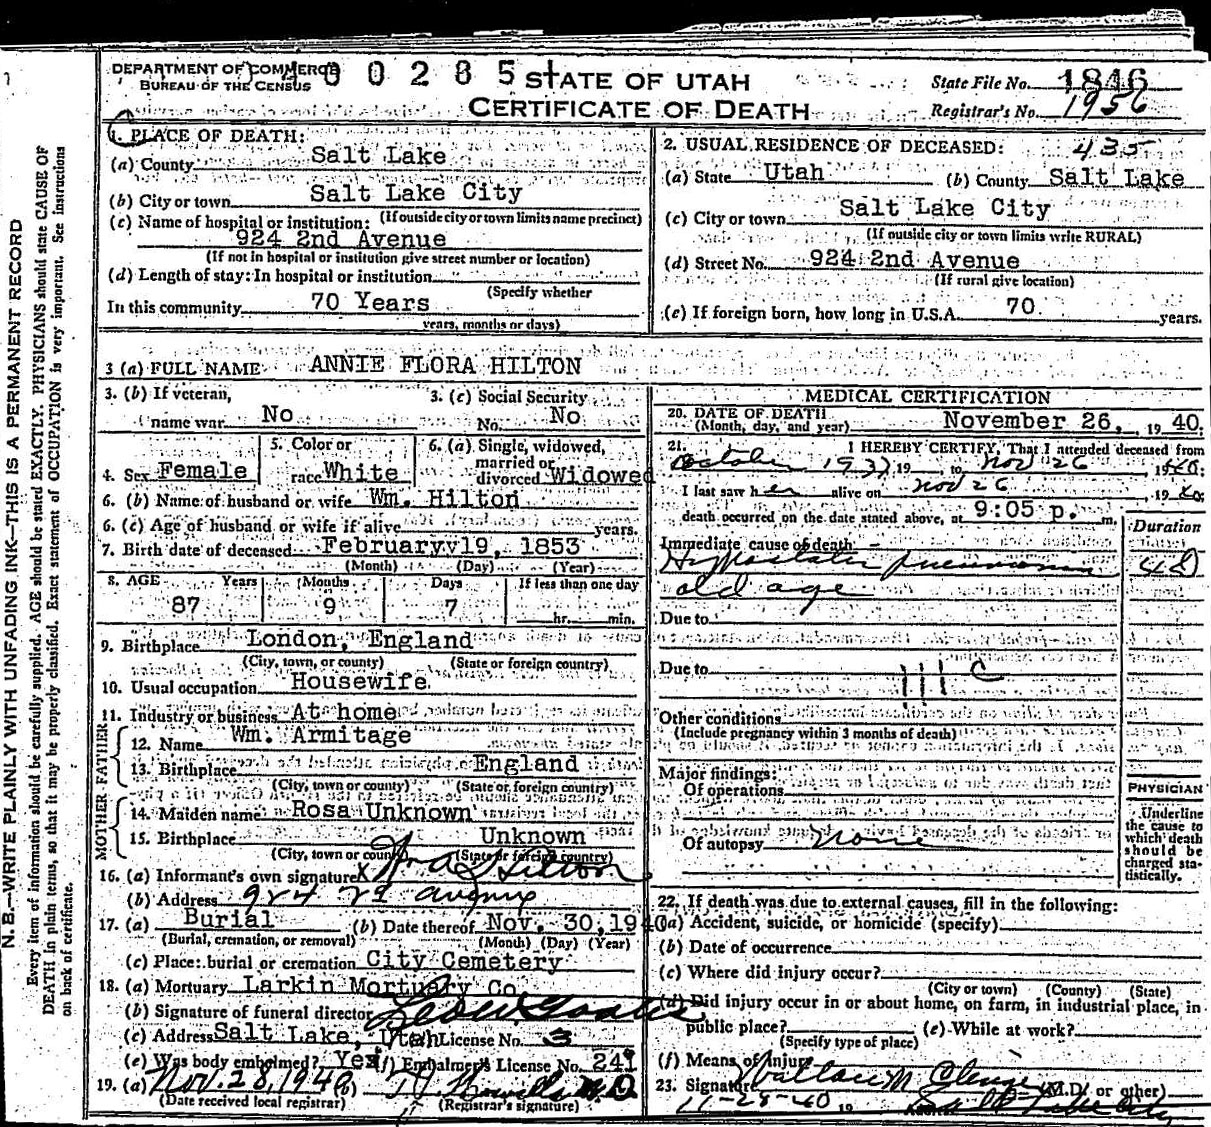 DEPARTMENT OF COMMERCE
BUREAU OF THE CENSUS
STATE OF UTAH
CERTIFICATE OF DEATH
State File No. 1846
Registrar's No. 1956
1. PLACE OF DEATH:
(a) County Salt Lake
(b) City or town Salt Lake City
(If outside city or town limits name precinct)
(c) Name of hospital or institution:
924 2nd Avenue
(If not in hospital or institution give street number or location)
(d) Length of stay: In hospital or institution
(Specify whether
In this community 70 Years
years, months or days)
2. USUAL RESIDENCE OF DECEASED: 435
(a) State Utah (b) County Salt Lake
(c) City or town Salt Lake City
(If outside city or town limits write RURAL)
(d) Street No. 924 2nd Avenue
(If rural give location)
(e) If foreign born, how long in U.S.A. 70 years.
3 (a) FULL NAME ANNIE FLORA HILTON
3. (b) If veteran, name war No
3. (c) Social Security No. No
4. Sex Female
5. Color or race White
6. (a) Single, widowed, married or divorced Widowed
6. (b) Name of husband or wife Wm. Hilton
6. (c) Age of husband or wife if alive years.
7. Birth date of deceased February 19, 1853
(Month) (Day) (Year)
8. AGE Years Months Days If less than one day
87 9 7 hr. min.
9. Birthplace London, England
(City, town, or county) (State or foreign country)
10. Usual occupation Housewife
11. Industry or business At home
FATHER
12. Name Wm. Armitage
13. Birthplace England
(City, town or county) (State or foreign country)
MOTHER
14. Maiden name Rosa Unknown
15. Birthplace Unknown
(City, town or county) (State or foreign country)
16. (a) Informant's own signature X Wm A Hilton
(b) Address 924 2d avenue
17. (a) Burial (b) Date thereof Nov. 30, 1940
(Burial, cremation, or removal) (Month) (Day) (Year)
(c) Place: burial or cremation City Cemetery
18. (a) Mortuary Larkin Mortuary Co.
(b) Signature of funeral director
(c) Address Salt Lake, Utah License No. 3
(e) Was body embalmed? Yes (f) Embalmer's License No. 249
19. (a) Nov. 28, 1940 (b) M.D.
(Date received local registrar) (Registrar's signature)
MEDICAL CERTIFICATION
20. DATE OF DEATH
(Month, day, and year) November 26, 19 40.
21. I HEREBY CERTIFY, That I attended deceased from
October 1937, 19 to Nov 26 1940;
I last saw her alive on Nov 26, 1940;
death occurred on the date stated above, at 9:05 p. m.
Duration
Immediate cause of death
Hypostatic pneumonia 4 D
old age
Due to
Due to
111 C
Other conditions
(Include pregnancy within 3 months of death)
Major findings:
Of operations
Of autopsy none
PHYSICIAN
Underline
the cause to
which death
should be
charged sta-
tistically.
22. If death was due to external causes, fill in the following:
(a) Accident, suicide, or homicide (specify)
(b) Date of occurrence
(c) Where did injury occur?
(City or town) (County) (State)
(d) Did injury occur in or about home, on farm, in industrial place, in
public place? (e) While at work?
(Specify type of place)
(f) Means of Injury
23. Signature (M.D. or other)
11-28-40 19 Address Salt Lake City
N. B.—WRITE PLAINLY WITH UNFADING INK—THIS IS A PERMANENT RECORD
Every item of information should be carefully supplied. AGE should be stated EXACTLY. PHYSICIANS should state CAUSE OF
DEATH in plain terms, so that it may be properly classified. Exact statement of OCCUPATION is very important. See instructions
on back of certificate.